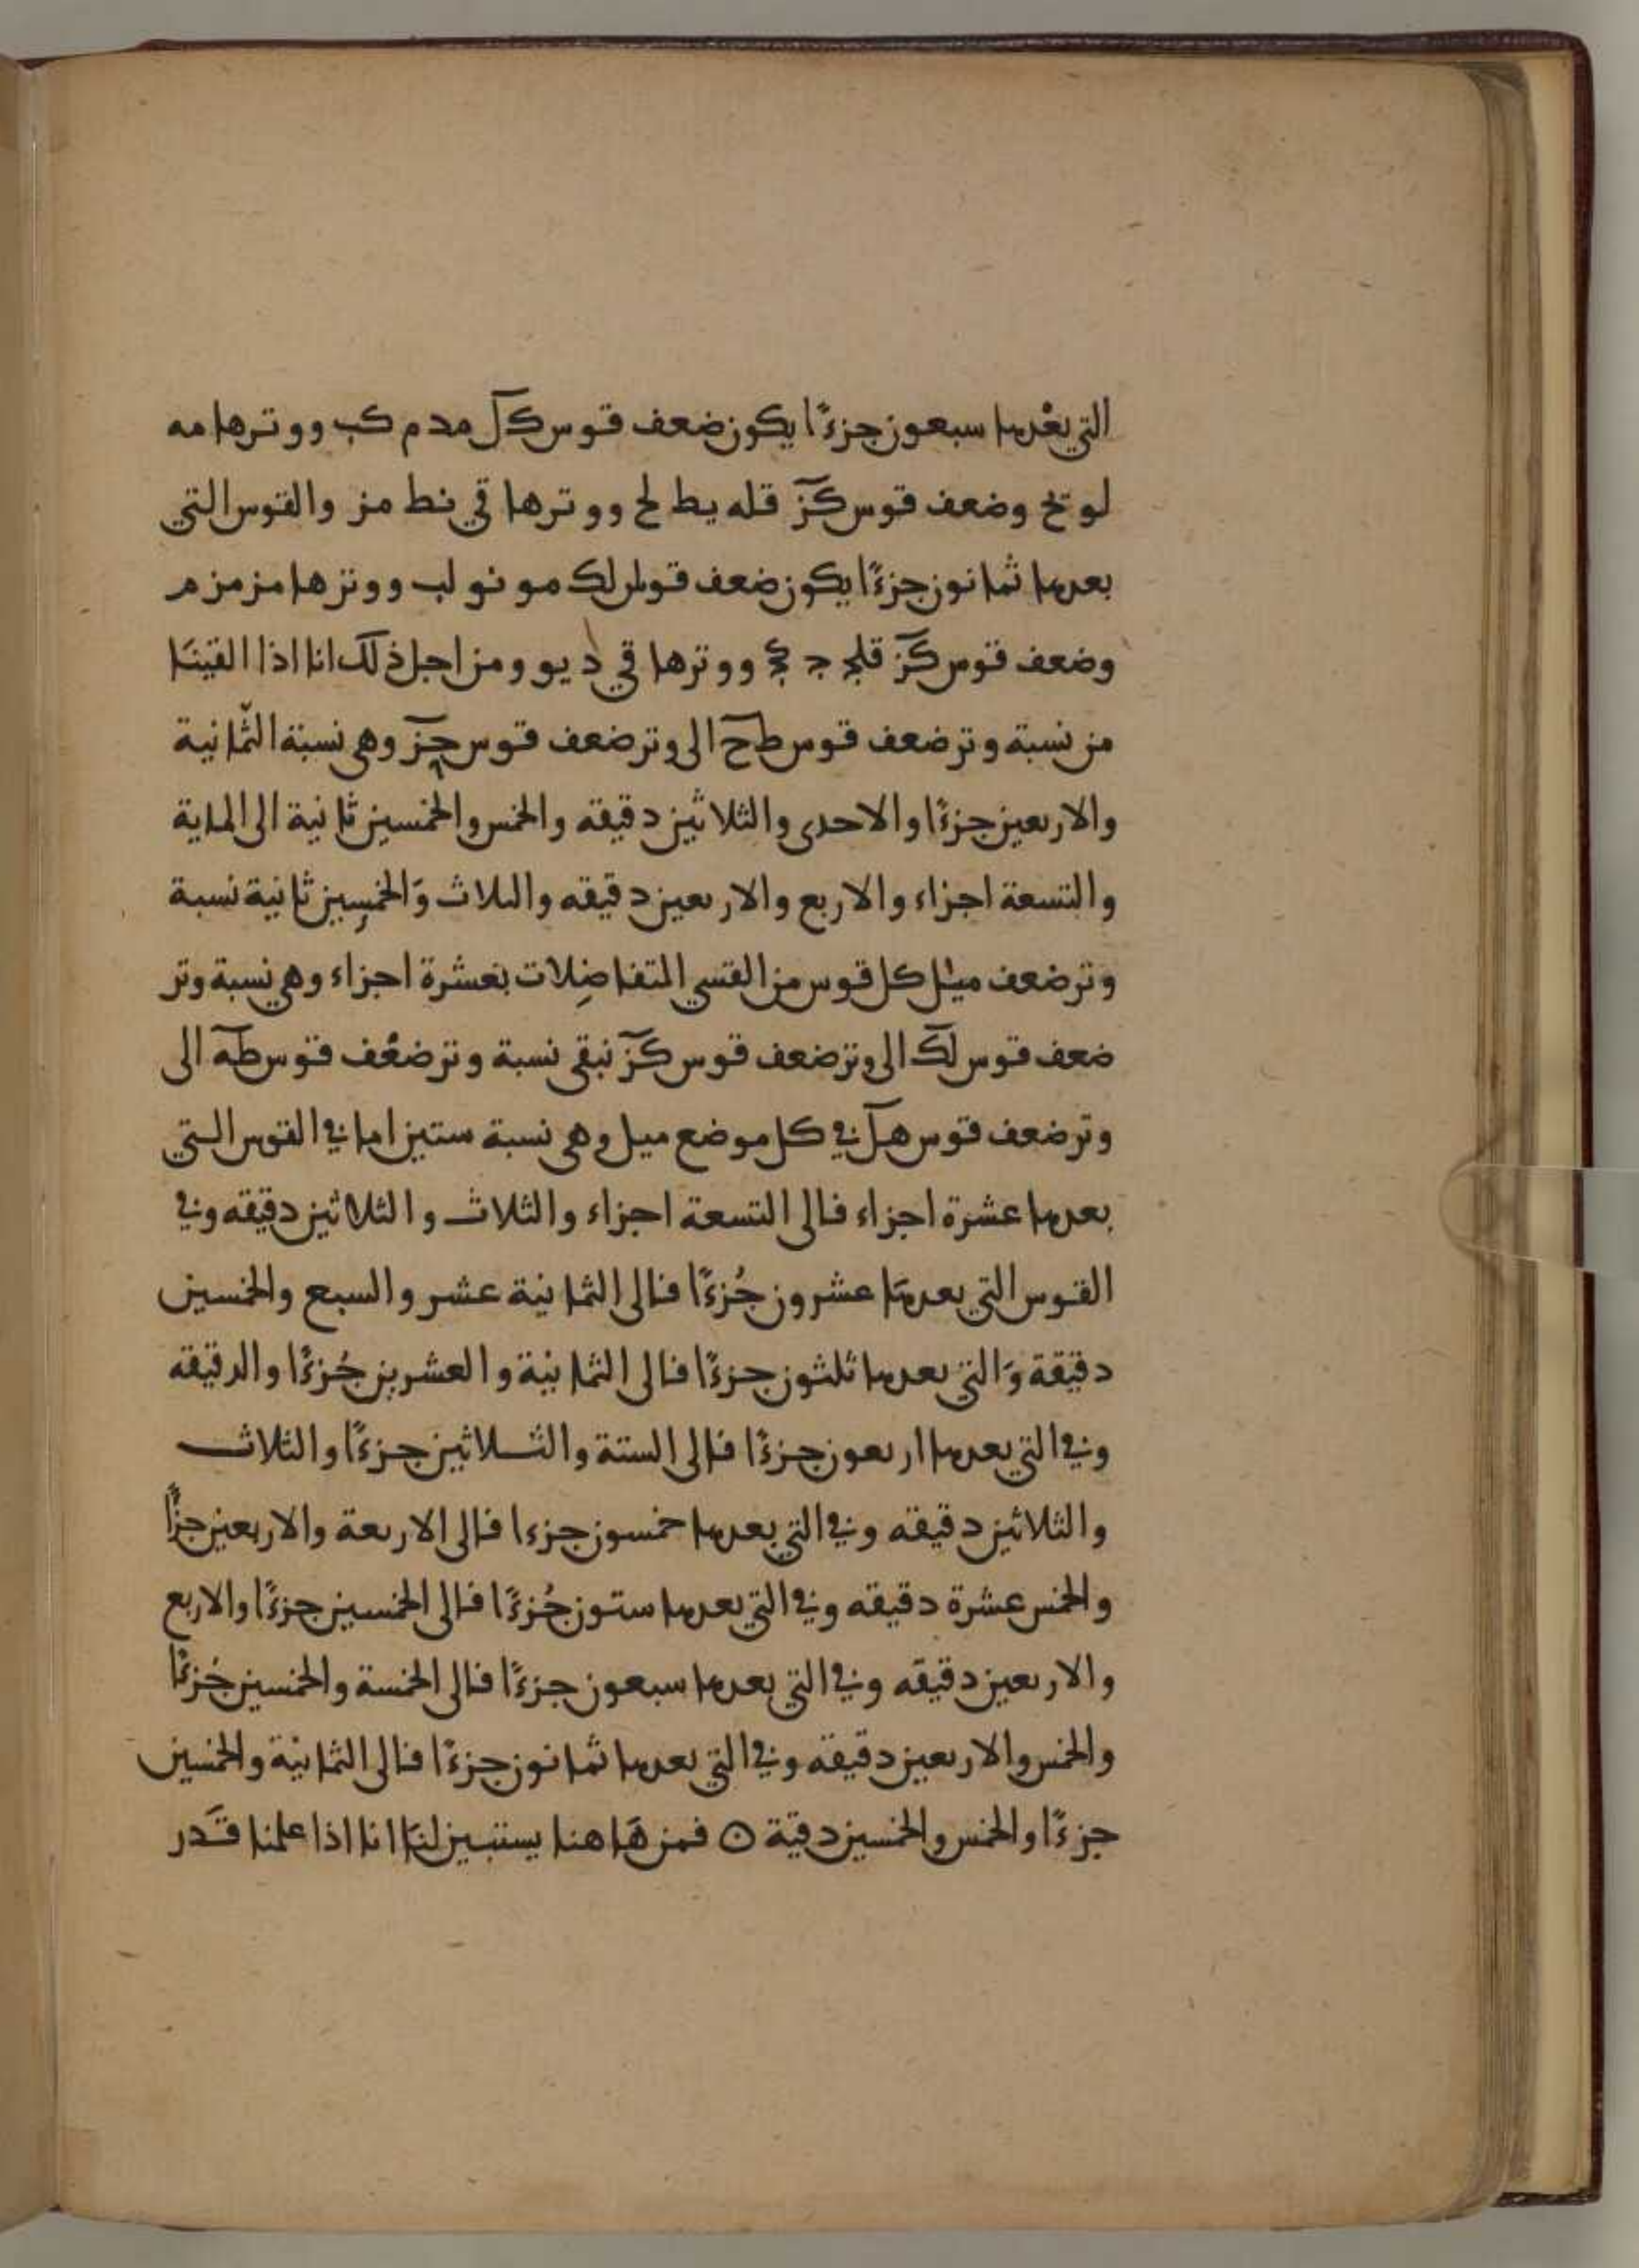 التي بعدها سبعون جزءًا يكون ضعف قوس كل مد م كب ووترها مه
لو يح وضعف قوس كز قله يط لح ووترها قي نط مز والقوس التي
بعدها ثمانون جزءًا يكون ضعف قوس لك مو نو لب ووترها مز مز م
وضعف قوس كز قلج ج كح ووترها قي د يو ومن اجل ذلك انا اذا القينَا
من نسبة وتر ضعف قوس طح الى وتر ضعف قوس حز وهي نسبة الثّمانية
والاربعين جزءًا والاحدى والثلاثين دقيقه والخمس والخمسين ثانية الى الماية
والتسعة اجزاء والاربع والاربعين دقيقه والىلاث وَالخمسِين ثانية نسبة
وتر ضعف ميل كل قوس من القسي المتفاضِلات بعشرة اجزاء وهي نسبة وتر
ضعف قوس لك الى وتر ضعف قوس كز نبقى نسبة وتر ضعْف قوس طه الى
وتر ضعف قوس هل في كل موضع ميل وهي نسبة ستين اما في القوس التي
بعدها عشرة اجزاء فالى التسعة اجزاء والثلاث والثلاثين دقيقه وفي
القوس التي بعدهَا عشرون جُزءًا فالى الثمانية عشر والسبع والخمسين
دقيقة وَالتي بعدها ثلثون جزءًا فالى الثمانية والعشرين جُزءًا والدقيقه
وفي التي بعدها اربعون جزءًا فالى الستة والثلاثين جزءًا والثلاث
والثلاثين دقيقه وفي التي بعدها خمسون جزءا فالى الاربعة والاربعين جزًا
والخمس عشرة دقيقه وفي التي بعدها ستون جُزءًا فالى الخمسين جزءًا والاربع
والاربعين دقيقه وفي التي بعدها سبعون جزءًا فالى الخمسة والخمسين جُزءًا
والخمس والاربعين دقيقه وفي التي بعدها ثمانون جزءًا فالى الثمانية والخمسين
جزءًا والخمس والخمسين دقيقة ن فمن هَاهنا يستبين لنَا انا اذا علمنا قَدر